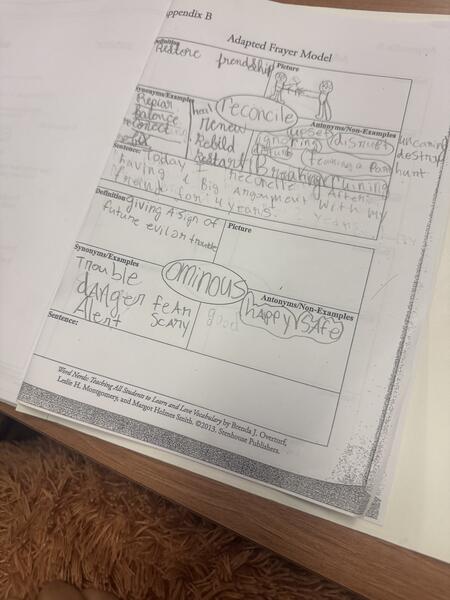 Appendix B
Adapted Frayer Model
Definition
Restore friendship
Picture
Synonyms/Examples
Repiar
balance
reconect
renew
Rebild
Restart
reconcile
Antonyms/Non-Examples
upset
disrupt
ignoring
tearing a part
Breaking
ruining
uncaring
destroy
hurt
Sentence:
Today I reconcile after
having a Big Argument with my
friend for 4 years.
Definition
giving a sign of
future evil or trouble
Picture
Synonyms/Examples
Trouble
danger
fear
Alert
scary
ominous
Antonyms/Non-Examples
good
happy
safe
Sentence:
Word Nerds: Teaching All Students to Learn and Love Vocabulary by Brenda J. Overturf,
Leslie H. Montgomery, and Margot Holmes Smith. ©2013. Stenhouse Publishers.